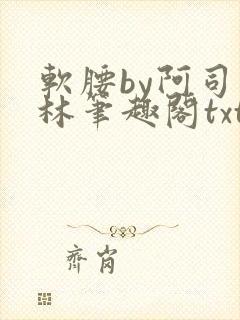 軟腰by阿司
林筆趣閣txt
齊肖